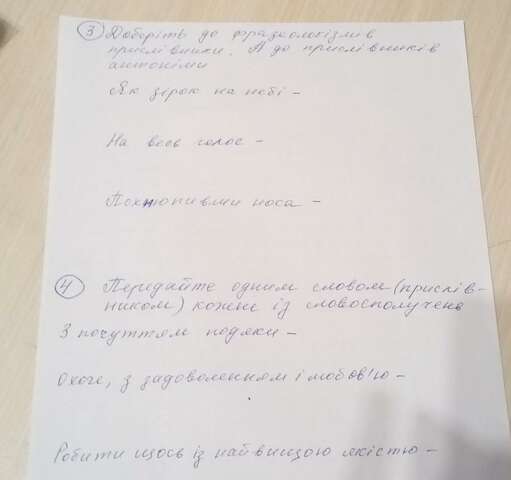 3 Доберіть до фразеологізмів
прислівники. А до прислівників
антоніми
Як зірок на небі –
На весь голос –
Похнюпивши носа –
4 Передайте одним словом (прислів-
ником) кожне із словосполучень
З почуттям подяки –
Охоче, з задоволенням і любов'ю –
Робити щось із найвищою якістю –